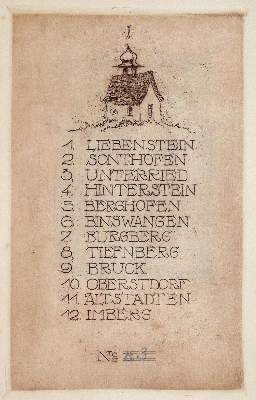 1. LIEBENSTEIN
2. SONTHOFEN
3. UNTERRIED
4. HINTERSTEIN
5. BERGHOFEN
6. BINSWANGEN
7. BURGBERG
8. TIEFNBERG
9. BRUCK
10. OBERSTDORF
11. ALTSTÄDTEN
12. IMBERG
No